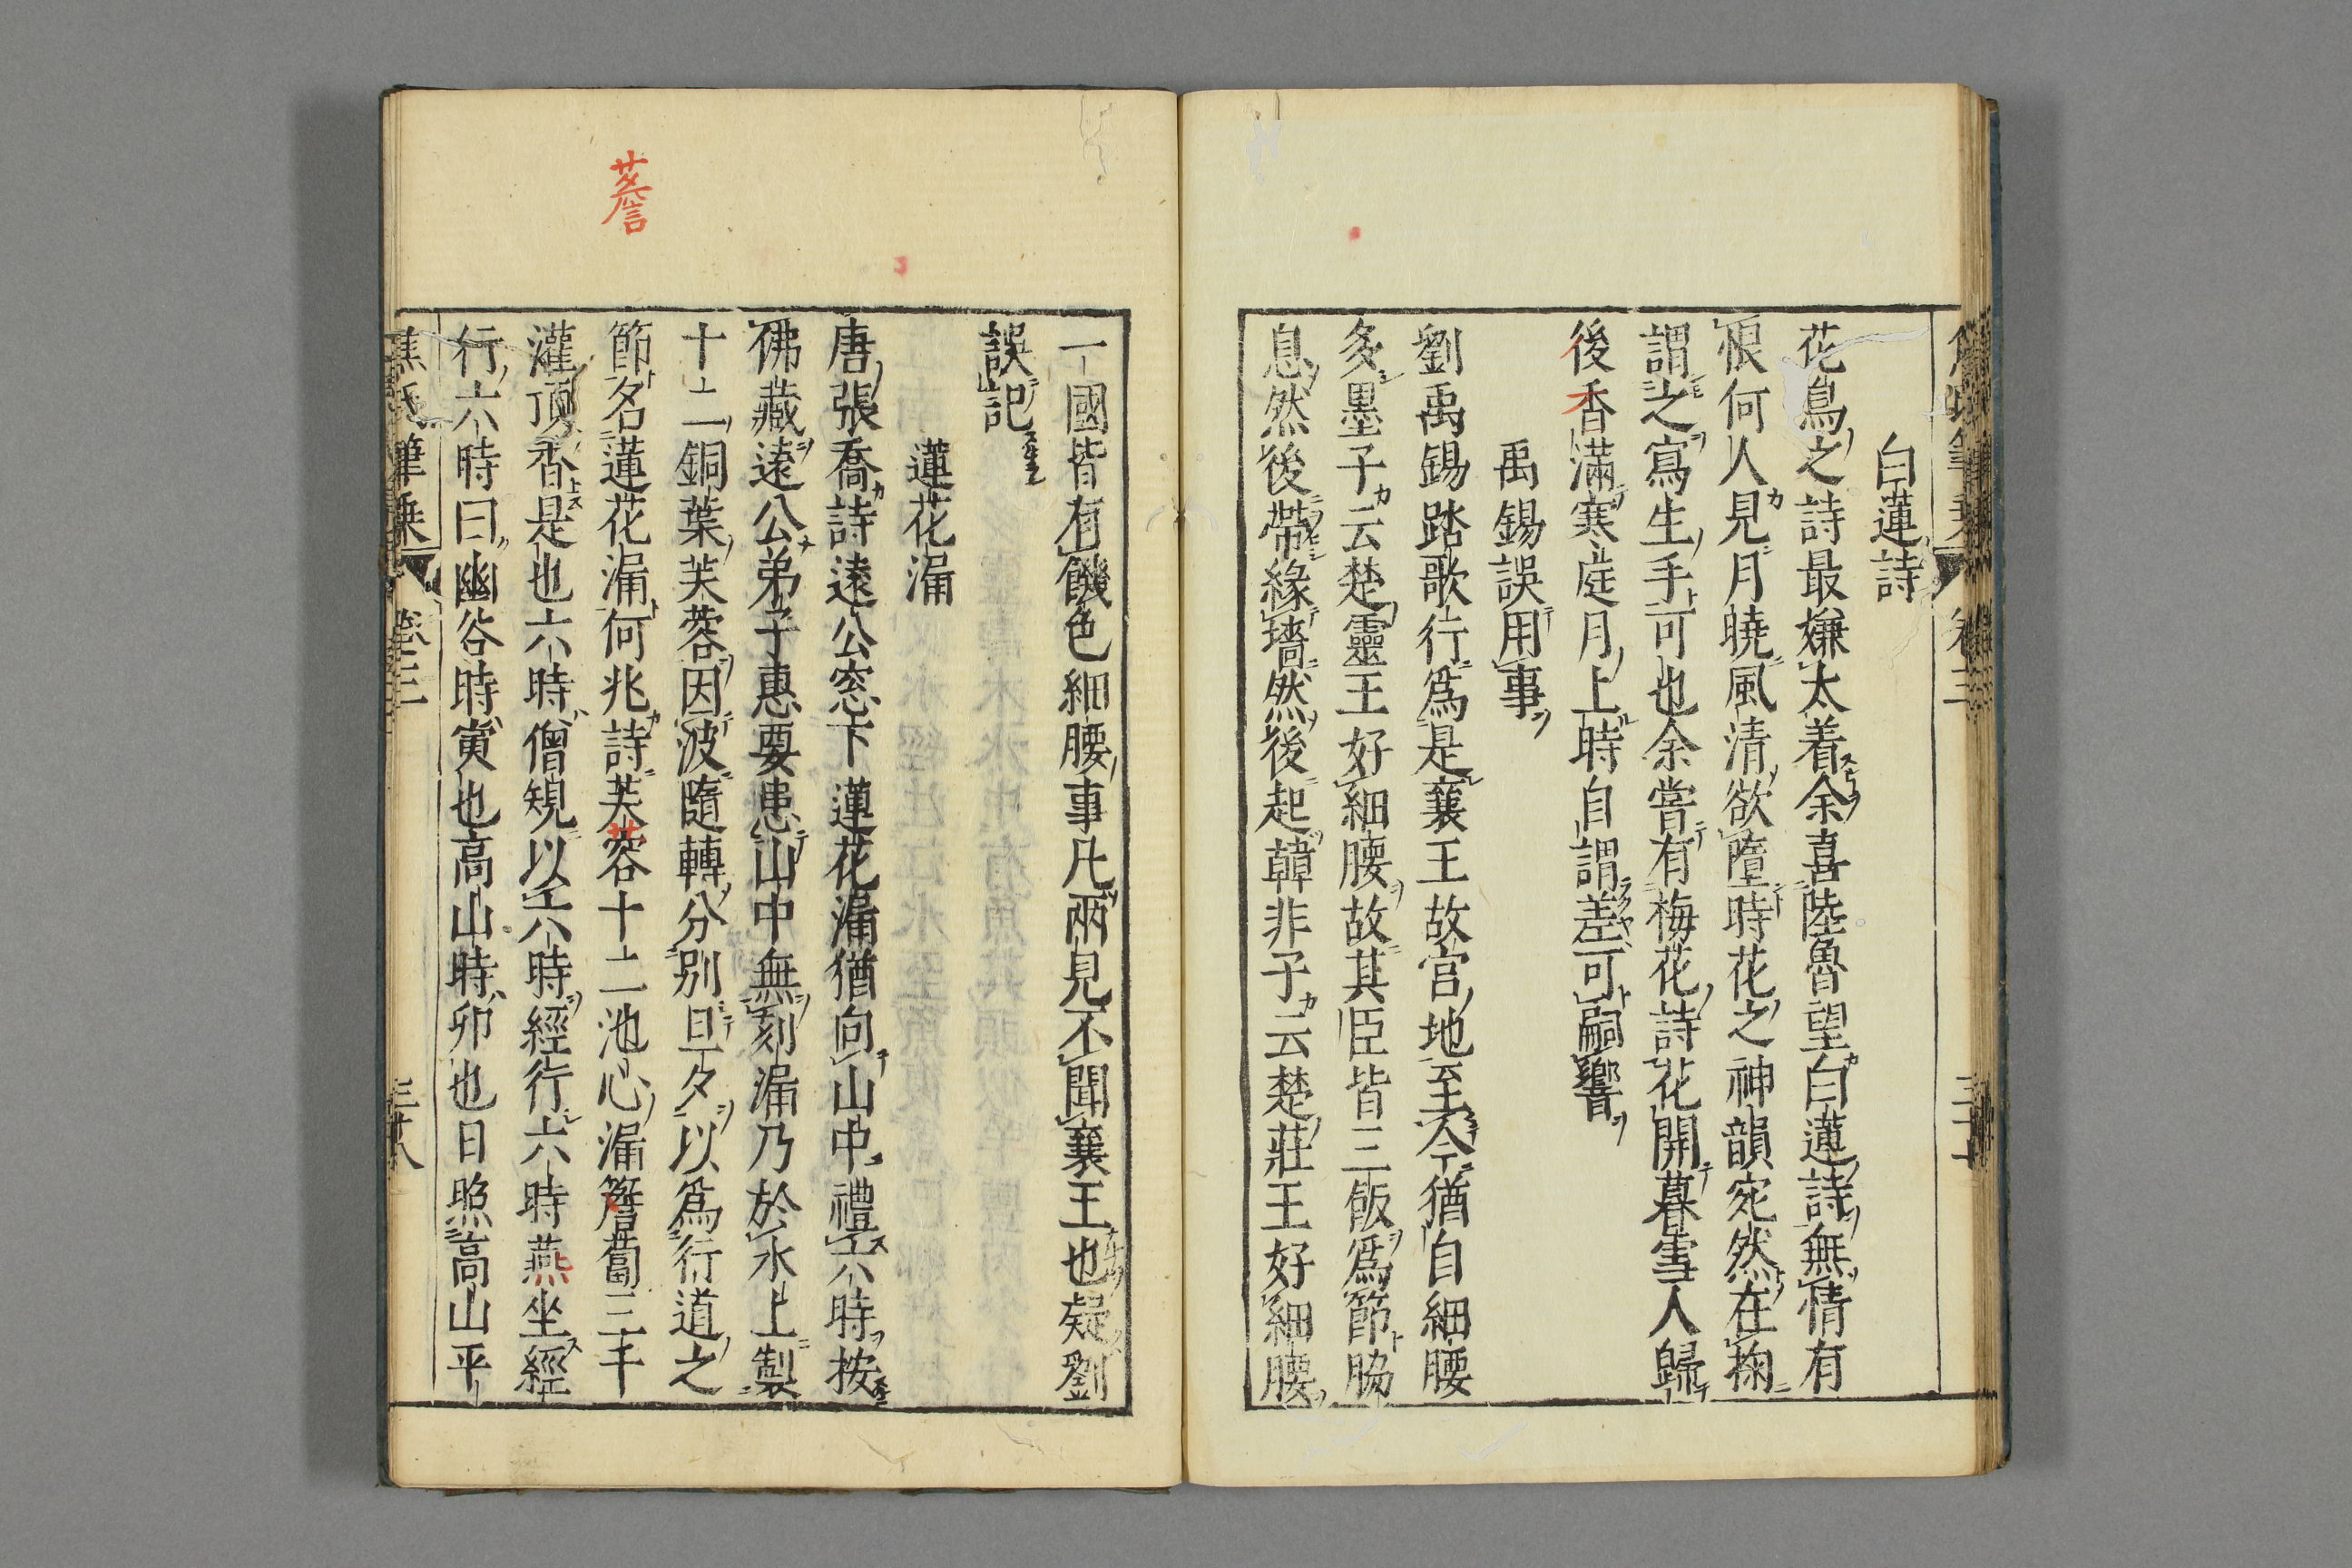 白蓮詩
花鳥之詩最嫌太着余喜陸魯望白蓮詩無情有
恨何人見月曉風清欲墮時花之神韻宛然在掬
謂之寫生手可也余嘗有梅花詩花開暮雪人歸
後香滿寒庭月上時自謂差可嗣響
禹錫誤用事
劉禹錫踏歌行爲是襄王故宮地至今猶自細腰
多墨子云楚靈王好細腰故其臣皆三飯爲節脇
息然後帶緣墻然後起韓非子云楚莊王好細腰
一國皆有饑色細腰事凡兩見不聞襄王也疑劉
誤記
蓮花漏
唐張喬詩遠公窓下蓮花漏猶向山中禮六時按
佛藏遠公弟子惠要患山中無刻漏乃於水上製
十二銅葉芙蓉因波隨轉分別旦夕以爲行道之
節名蓮花漏何兆詩芙蓉十二池心漏簷蔔三千
灌頂香是也六時僧規以六時經行六時燕坐經
行六時曰幽谷時寅也高山時卯也日照高山平
焦氏筆乗 卷三 三十八